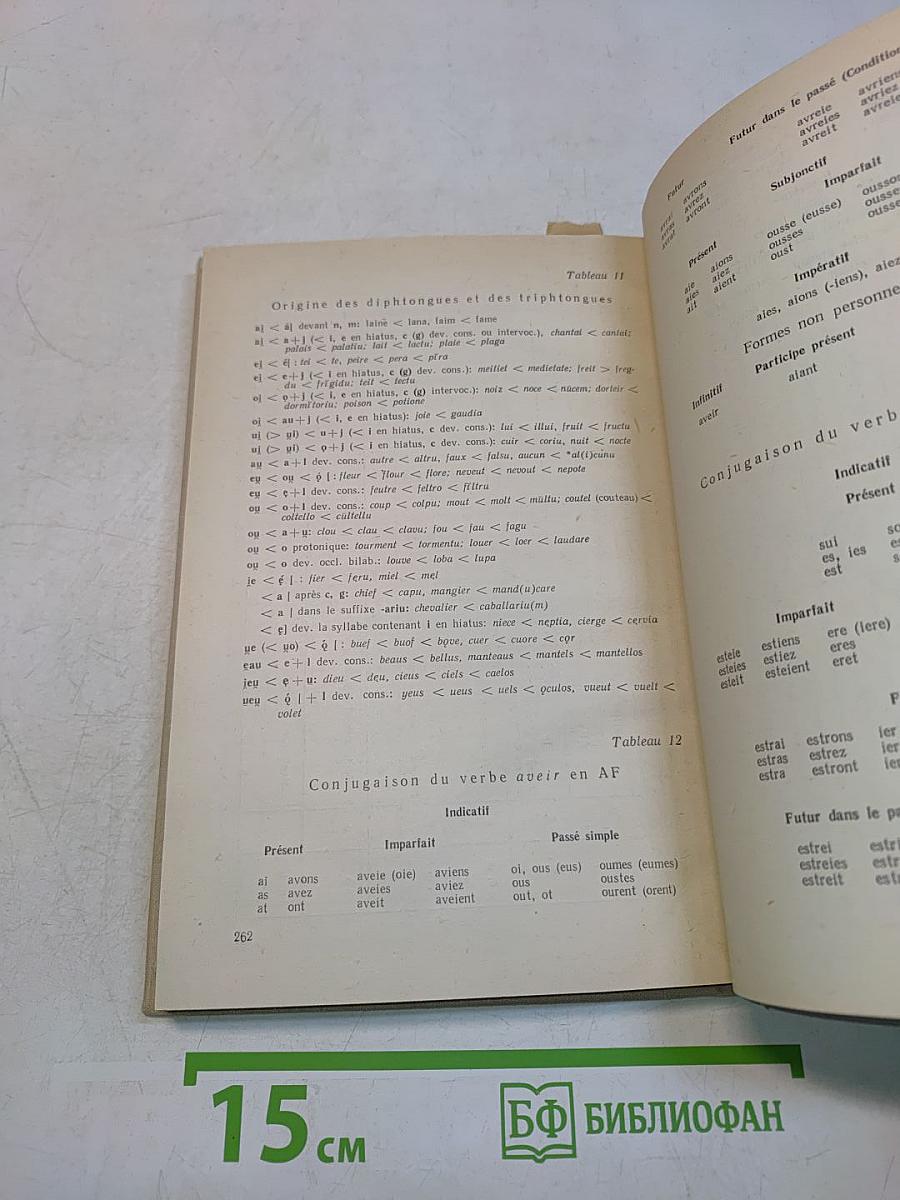 Tableau 11
Origine des diphtongues et des triphtongues
ai̯ < á̃[ devant n, m: laine < lana, faim < fame
ai̯ < a+j (< i, e en hiatus, c (g) dev. cons. ou intervoc.), chantai < cantai;
palais < palatiu; lait < lactu; plaie < plaga
ei̯ < ẹ́[ : tei < te, peire < pera < pĭra
ei̯ < e+j (< i en hiatus, c (g) dev. cons.): meitiet < medietate; freit > freg-
du < frĭgidu; teit < tectu
oi̯ < ọ+j (< i, e en hiatus, c (g) intervoc.): noiz < noce < nŭcem; dorteir <
dormĭtoriu; poison < potione
oi̯ < au+j (< i, e en hiatus): joie < gaudia
ui̯ (> u̯i) < u+j (< i en hiatus, c dev. cons.): lui < illui, fruit < fructu
ui̯ (> u̯i) < ǫ+j (< i en hiatus, c dev. cons.): cuir < coriu, nuit < nocte
au̯ < a+l dev. cons.: autre < altru, faux < falsu, aucun < *al(i)cunu
eu̯ < ou̯ < ọ́ [ : fleur < flour < flore; neveut < nevout < nepote
eu̯ < ẹ+l dev. cons.: feutre < feltro < fĭltru
ou̯ < o+l dev. cons.: coup < colpu; mout < molt < mŭltu; coutel (couteau) <
coltello < cŭltellu
ou̯ < a+u̯: clou < clau < clavu; fou < fau < fagu
ou̯ < o protonique: tourment < tormentu; louer < loer < laudare
ou̯ < o dev. occl. bilab.: louve < loba < lupa
i̯e < ę́ [ : fier < fęru, miel < męl
< a [ après c, g: chief < capu, mangier < mand(u)care
< a [ dans le suffixe -ariu: chevalier < caballariu(m)
< ę] dev. la syllabe contenant i en hiatus: niece < neptia, cierge < cęrvia
u̯e (< u̯o) < ǫ́ [ : buef < buof < bǫve, cuer < cuore < cǫr
eau̯ < e+l dev. cons.: beaus < bellus, manteaus < mantels < mantellos
i̯eu̯ < ę+u̯: dieu < dęu, cieus < ciels < caelos
u̯eu̯ < ǫ́ [+l dev. cons.: yeus < ueus < uels < ǫculos, vueut < vuelt <
volet
Tableau 12
Conjugaison du verbe aveir en AF
Indicatif
Présent Imparfait Passé simple
ai avons aveie (oie) aviens oi, ous (eus) oumes (eumes)
as avez aveies aviez ous oustes
at ont aveit aveient out, ot ourent (orent)
262
Futur dans le passé (Condition
avreie avriens
avreies avriez
avreit avreie
Futur
avrai avrons
avras avrez
avrat avront
Subjonctif
Présent Imparfait
aie aions ousse (eusse) ousso
aies aiez ousses ousse
ait aient oust ousse
Impératif
aies, aions (-iens), aiez
Formes non personne
Infinitif Participe présent
aveir aiant
Conjugaison du verb
Indicatif
Présent
sui so
es, ies es
est s
Imparfait
esteie estiens ere (iere)
esteies estiez eres
esteit esteient eret
F
estrai estrons ier
estras estrez ier
estra estront ier
Futur dans le pa
estrei estri
estreies estr
estreit est
15 см
БФ БИБЛИОФАН